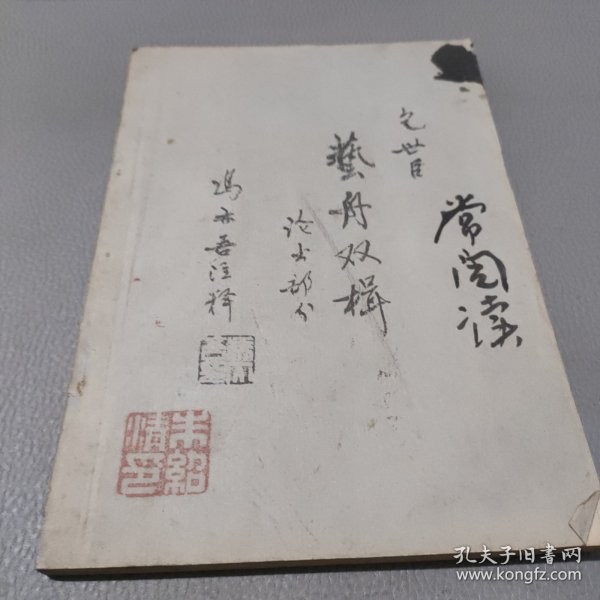 常阅读
包世臣
藝舟双楫
论书部分
冯亦吾注释
朱紹
情印
孔夫子旧书网
www.kongfz.com